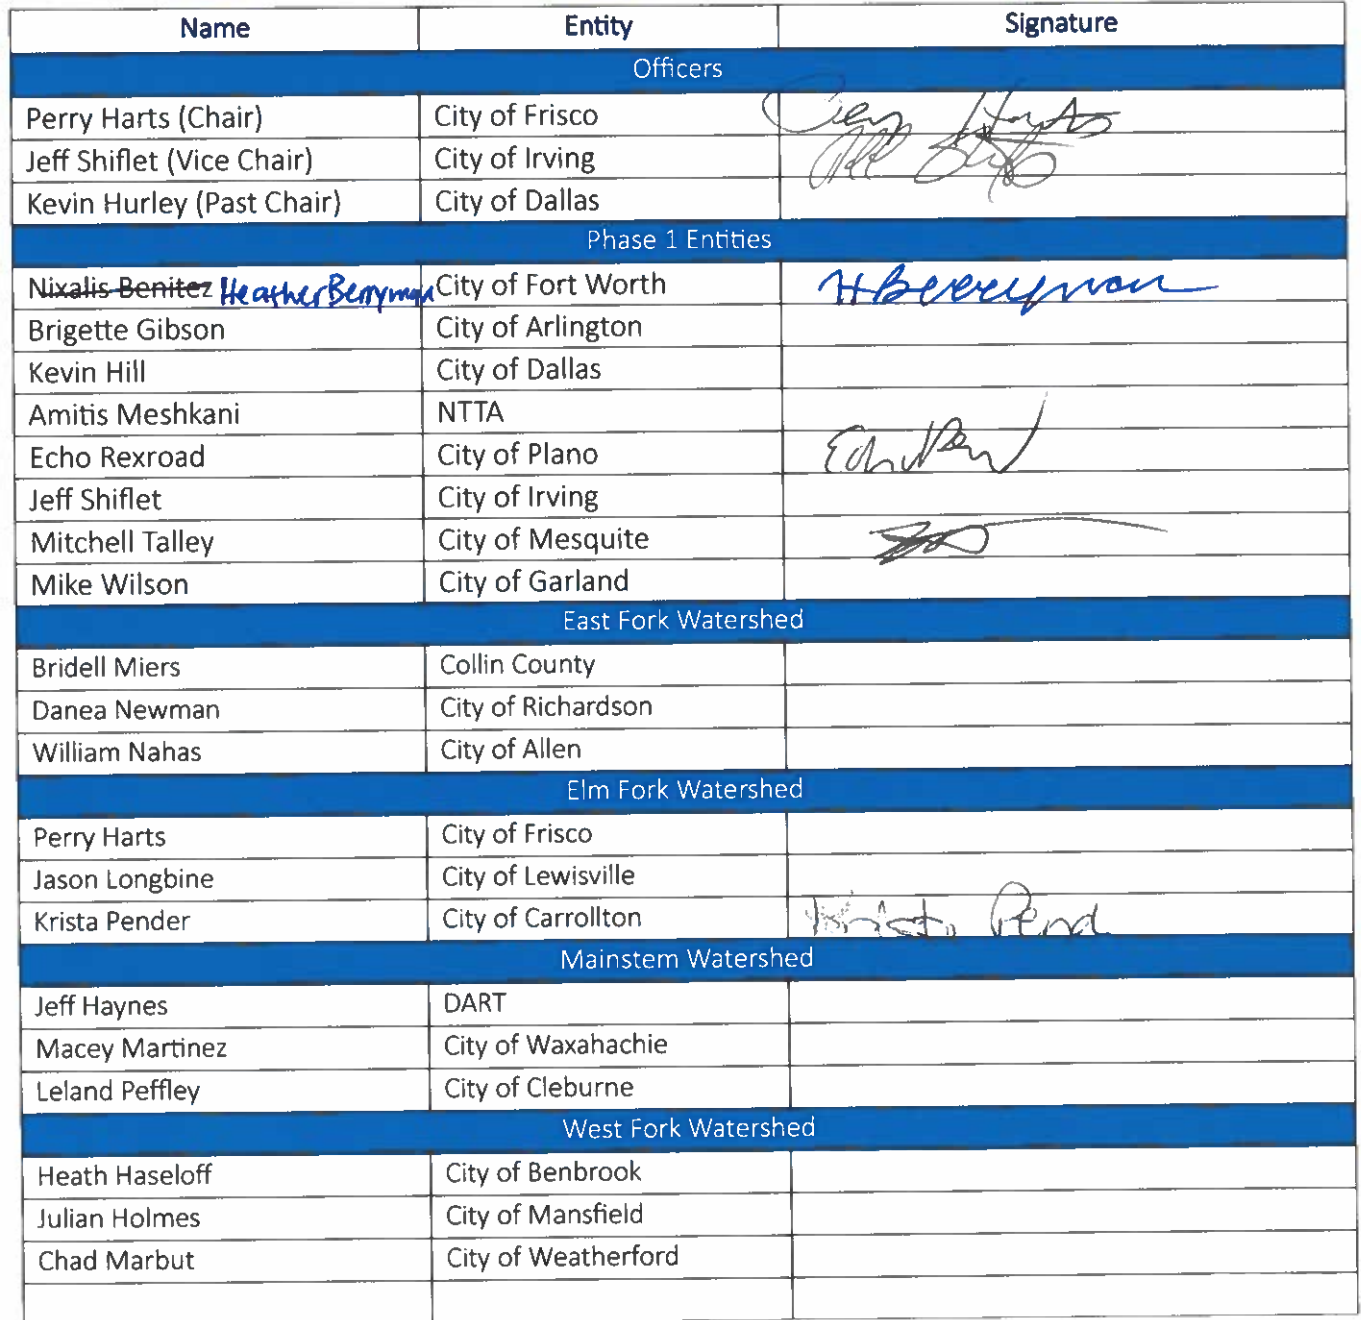 Name Entity Signature
Officers
Perry Harts (Chair) City of Frisco Perry Harts
Jeff Shiflet (Vice Chair) City of Irving
Kevin Hurley (Past Chair) City of Dallas
Phase 1 Entities
Nixalis Benitez Heather Berryman City of Fort Worth H Berryman
Brigette Gibson City of Arlington
Kevin Hill City of Dallas
Amitis Meshkani NTTA
Echo Rexroad City of Plano
Jeff Shiflet City of Irving
Mitchell Talley City of Mesquite
Mike Wilson City of Garland
East Fork Watershed
Bridell Miers Collin County
Danea Newman City of Richardson
William Nahas City of Allen
Elm Fork Watershed
Perry Harts City of Frisco
Jason Longbine City of Lewisville
Krista Pender City of Carrollton Krista Pend
Mainstem Watershed
Jeff Haynes DART
Macey Martinez City of Waxahachie
Leland Peffley City of Cleburne
West Fork Watershed
Heath Haseloff City of Benbrook
Julian Holmes City of Mansfield
Chad Marbut City of Weatherford